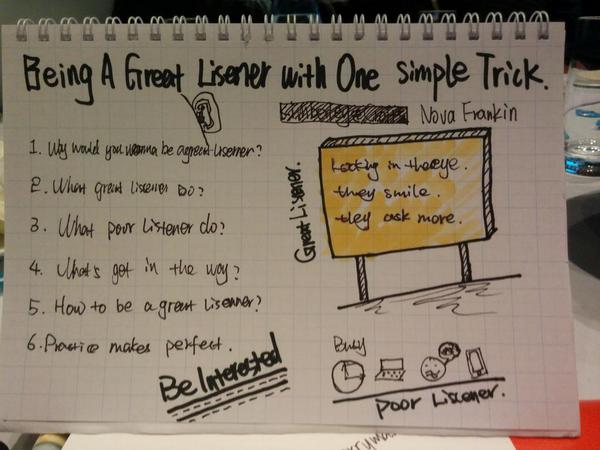 Being A Great Lisener with One Simple Trick.
Nova Frankin
1. Why would you wanna be a great lisener?
2. What great lisener Do?
3. What poor Listener do?
4. What's got in the way?
5. How to be a great Lisenner?
6. Practice makes perfect.
Be Interested
Great Listener.
Looking in the eye.
they smile.
they ask more.
Busy
Poor Liscener.